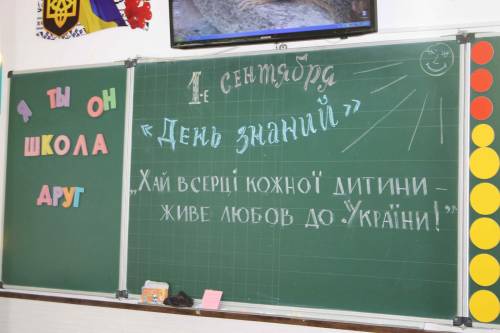 Я ТЫ ОН
ШКОЛА
ДРУГ
1-е СЕНТЯБРЯ
«ДЕНЬ ЗНАНИЙ»
„ХАЙ В СЕРЦІ КОЖНОЇ ДИТИНИ –
ЖИВЕ ЛЮБОВ ДО УКРАЇНИ!”